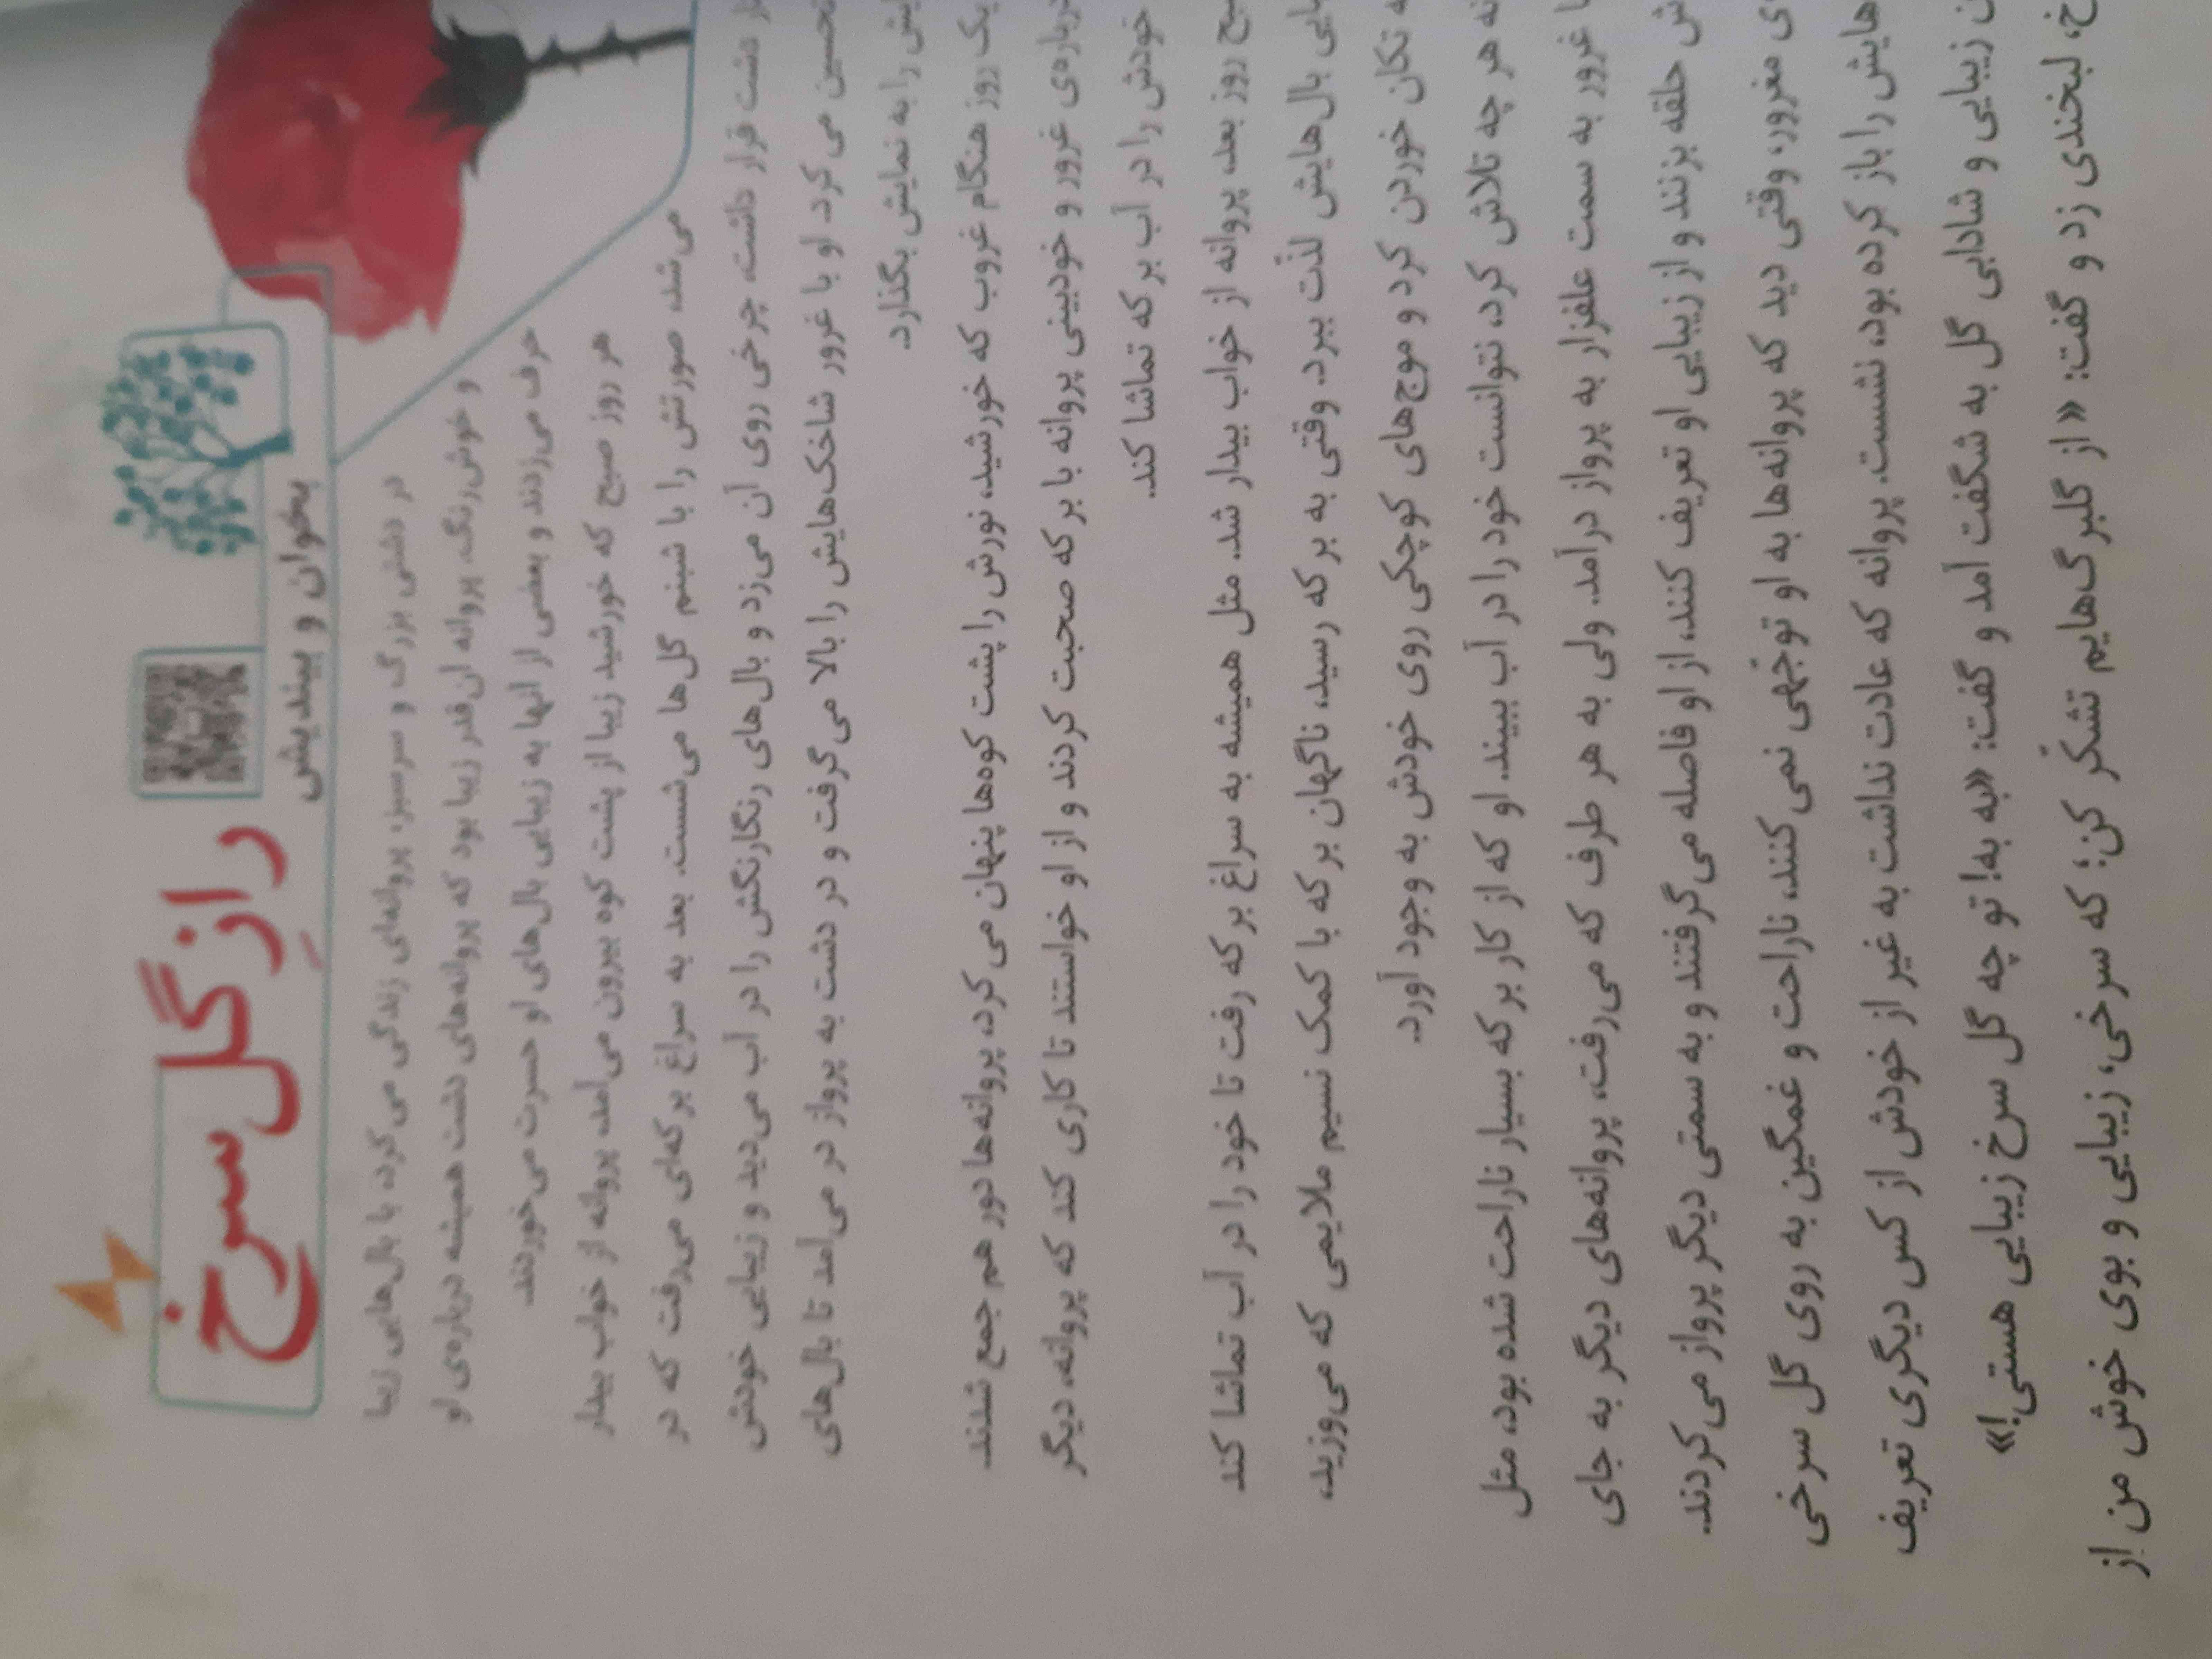 راز گل سرخ
بخوان و بیندیش
در دشتی بزرگ و سرسبز، پروانه‌ای زندگی می‌کرد، با بال‌هایی زیبا
و خوش‌رنگ. پروانه آن‌قدر زیبا بود که پروانه‌های دشت همیشه درباره‌ی او
حرف می‌زدند و بعضی از آنها به زیبایی بال‌های او حسرت می‌خوردند.
هر روز صبح که خورشید زیبا از پشت کوه بیرون می‌آمد، پروانه از خواب بیدار
می‌شد، صورتش را با شبنم گل‌ها می‌شست. بعد به سراغ برکه‌ای می‌رفت که در
دشت قرار داشت، چرخی روی آن می‌زد و بال‌های رنگارنگش را در آب می‌دید و زیبایی خودش
تحسین می‌کرد. او با غرور شاخک‌هایش را بالا می‌گرفت و در دشت به پرواز در می‌آمد تا بال‌های
را به نمایش بگذارد.
یک روز هنگام غروب که خورشید، نورش را پشت کوه‌ها پنهان می‌کرد، پروانه‌ها دور هم جمع شدند
درباره‌ی غرور و خودبینی پروانه با برکه صحبت کردند و از او خواستند تا کاری کند که پروانه، دیگر
خودش را در آب برکه تماشا کند.
روز بعد، پروانه از خواب بیدار شد. مثل همیشه به سراغ برکه رفت تا خود را در آب تماشا کند
بال‌هایش لذّت ببرد. وقتی به برکه رسید، ناگهان برکه با کمک نسیم ملایمی که می‌وزید،
تکان خوردن کرد و موج‌های کوچکی روی خودش به وجود آورد.
هر چه تلاش کرد، نتوانست خود را در آب ببیند. او که از کار برکه بسیار ناراحت شده بود، مثل
غرور به سمت علفزار به پرواز درآمد. ولی به هر طرف که می‌رفت، پروانه‌های دیگر به جای
حلقه بزنند و از زیبایی او تعریف کنند، از او فاصله می‌گرفتند و به سمتی دیگر پرواز می‌کردند.
مغرور، وقتی دید که پروانه‌ها به او توجّهی نمی‌کنند، ناراحت و غمگین به روی گل سرخی
را باز کرده بود، نشست. پروانه که عادت نداشت به غیر از خودش از کس دیگری تعریف
زیبایی و شادابی گل به شگفت آمد و گفت: «به به! تو چه گل سرخ زیبایی هستی!»
لبخندی زد و گفت: «از گلبرگ‌هایم تشکّر کن؛ که سرخی، زیبایی و بوی خوش من از